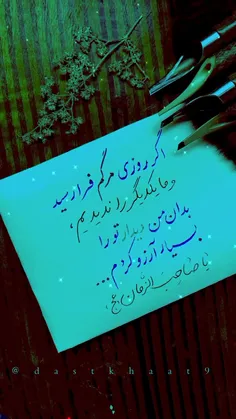 اگر روزی مرگم فرا رسید
و ما یکدیگر را ندیدیم،
بدان من دیدار تو را
بسیار آرزو کردم...
یا صاحب الزمان (عج)
@dastkhaat9